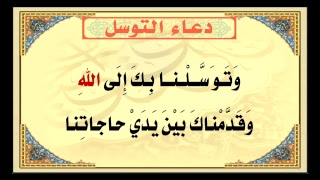 دعاء التوسل
وَتَوَسَّلْنا بِكَ إِلَى اللهِ
وَقَدَّمْناكَ بَيْنَ يَدَيْ حاجاتنا